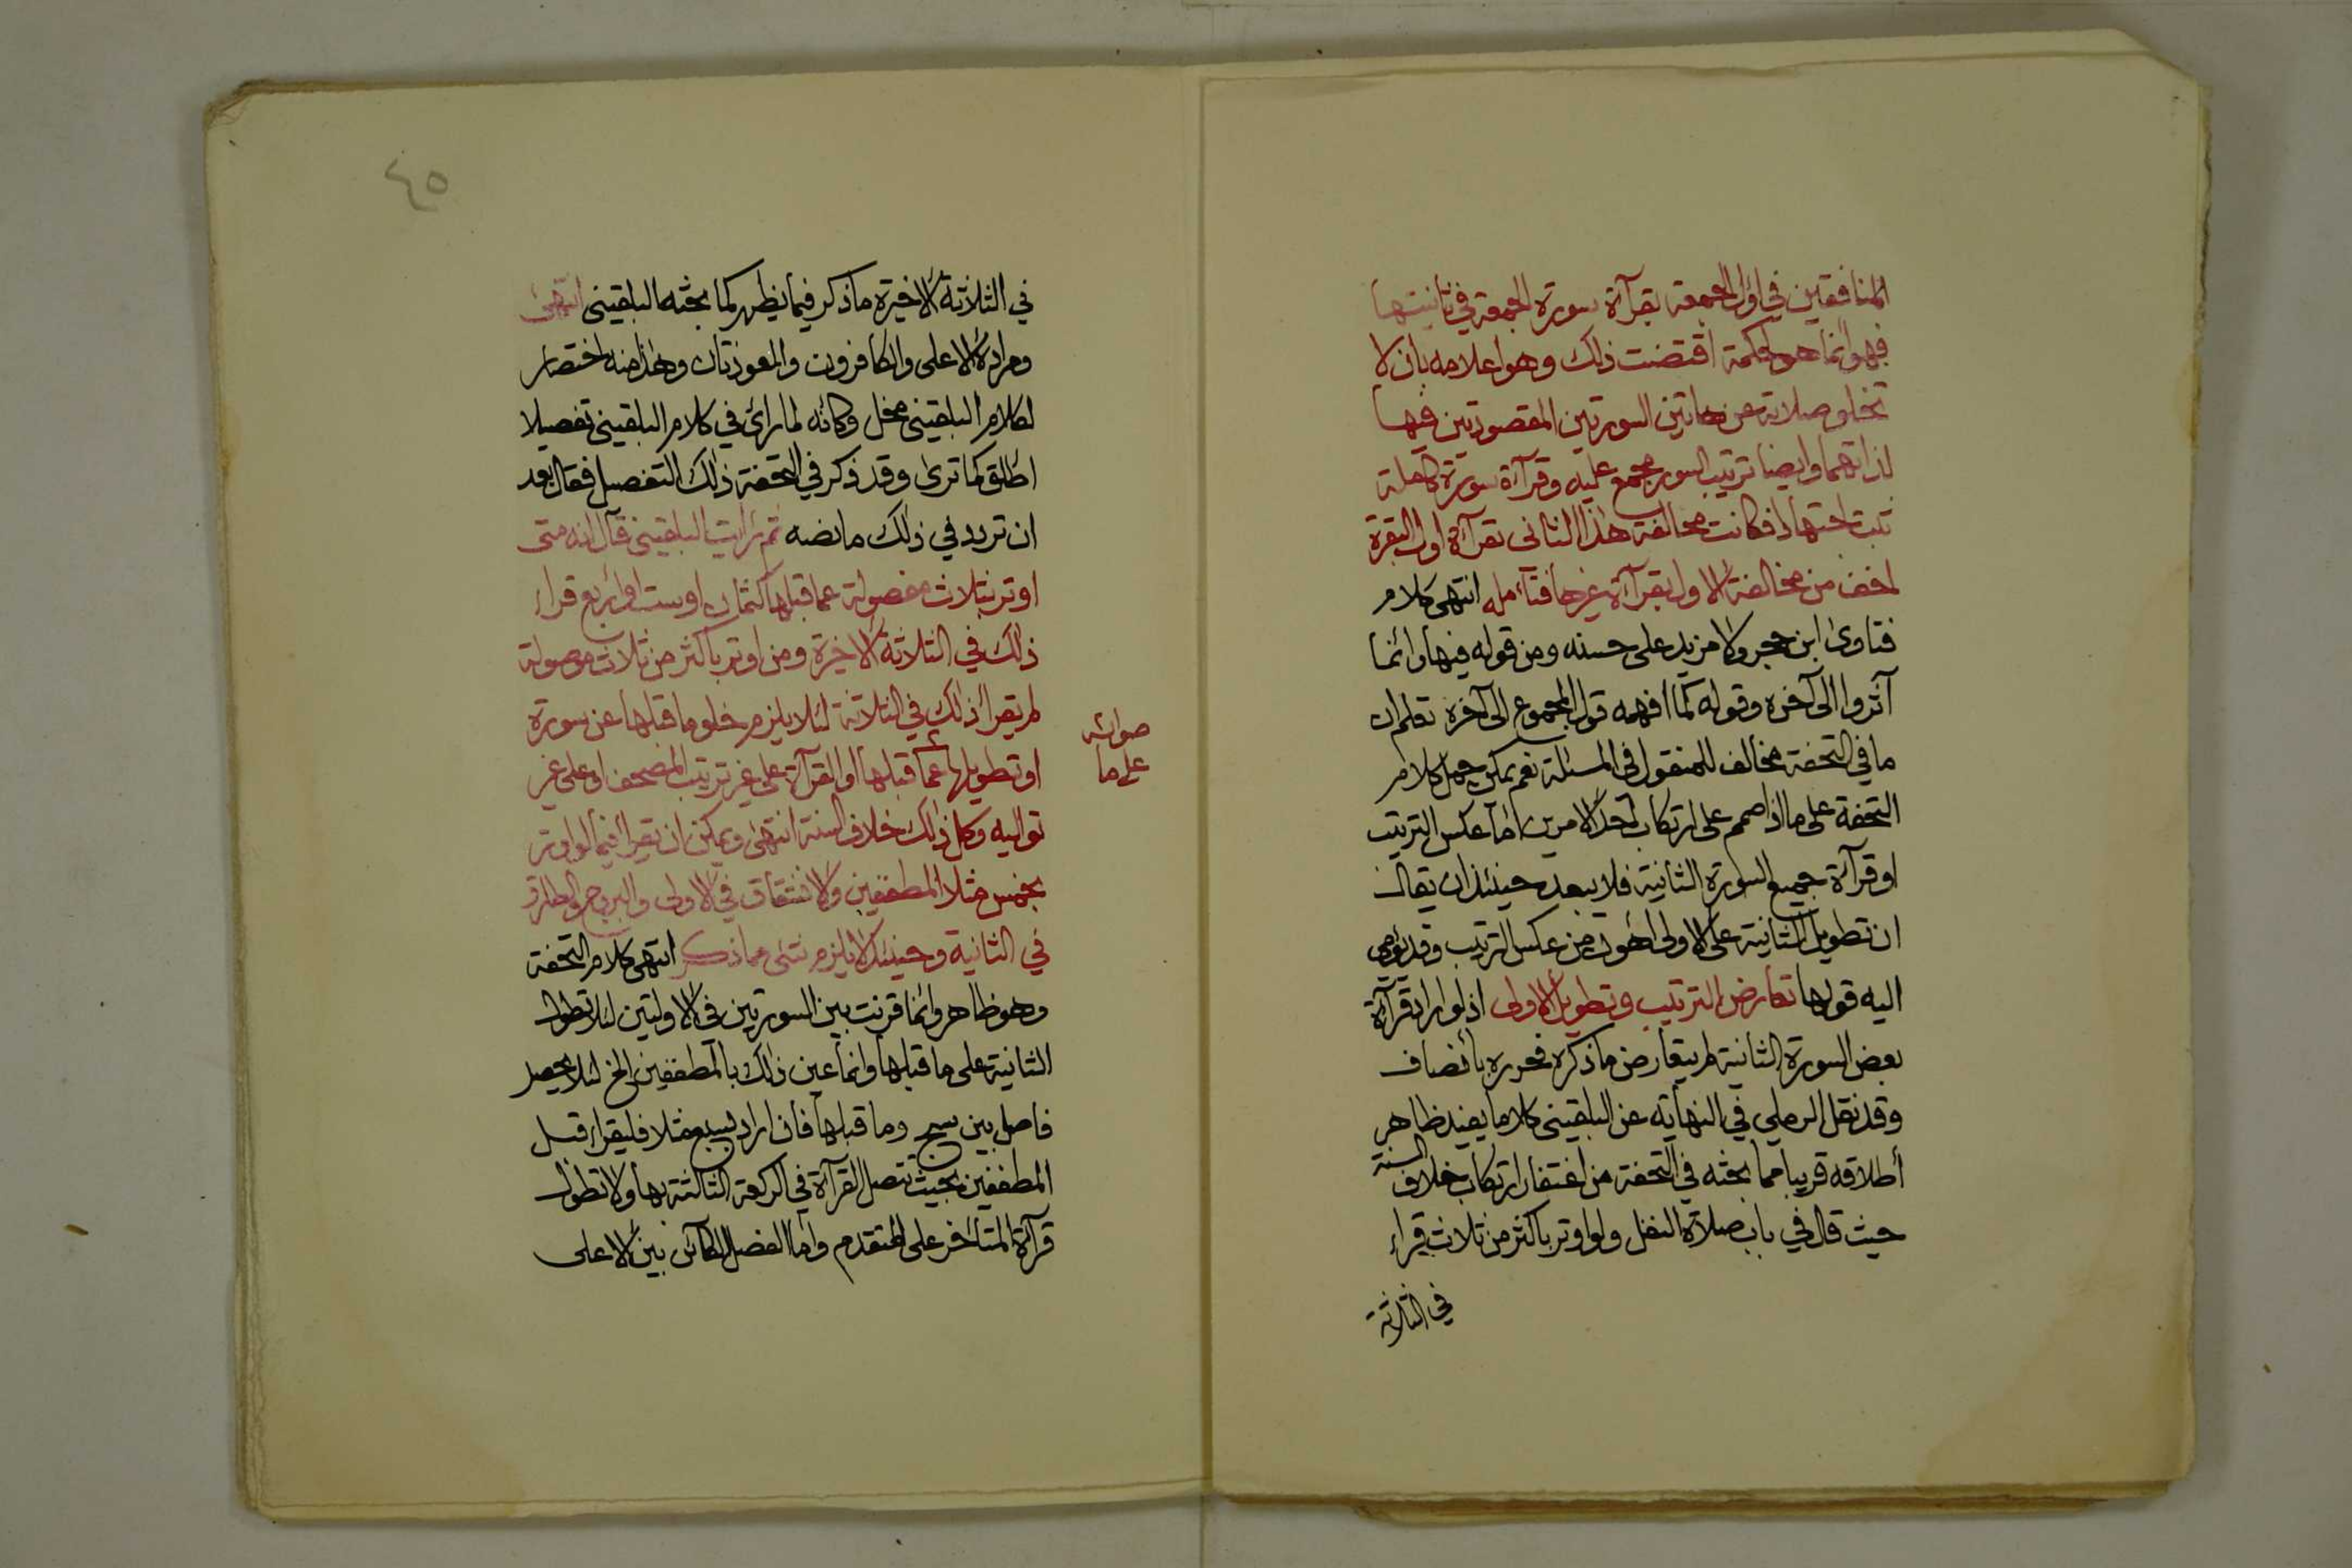 المنافقين في اولى الجمعة بقرآة سورة الجمعة في ثانيتها
فهو انما هو لحكمة اقتضت ذلك وهو اعلامه بان لا
تخلو صلاته عن هاتين السورتين المقصودتين فيها
لذاتهما وايضا ترتيب السور مجمع عليه وقرآة سورة كاملة
ثبت اجتهادا فكانت مخالفة هذا الثاني بقرآة اول البقرة
اخف من مخالفة الاول بقرآة غيرها فتأمله انتهى كلام
فتاوى ابن حجر ولا مزيد على حسنه ومن قوله فيها وانما
آثروا الى آخره وقوله كما افهمه قول المجموع الى آخره تعلم ان
ما في التحفة مخالف للمنقول في المسئلة نعم يمكن حمل كلام
التحفة على ما اذا صمم على ارتكاب احد الامرين اما عكس الترتيب
او قرآة جميع السورة الثانية فلا يبعد حينئذ ان يقال
ان تطويل الثانية على الاولى اهون من عكس الترتيب وقد يومى
اليه قولها تعارض الترتيب وتطويل الاولى اذ لو اراد قرآة
بعض السورة الثانية لم يتعارض ما ذكره فحرره بانصاف
وقد نقل الرملي في النهاية عن البلقيني كلاما يفيد ظاهر
أطلاقه قريبا مما بحثه في التحفة من اغتفار ارتكاب خلاف السنة
حيث قال في باب صلاة النفل ولو اوتر باكثر من ثلاث قرأ
في الثلاثة
٤٥
في الثلاثة الاخيرة ما ذكر فيما يظهر كما بحثه البلقيني انتهى
ومراده الاعلى والكافرون والمعوذتان وهذا منه اختصار
لكلام البلقيني مخل وكأنه لما رأى في كلام البلقيني تفصيلا
اطلق كما ترى وقد ذكر في التحفة ذلك التفصيل فقال بعد
ان تردد في ذلك ما نصه ثم رأيت البلقيني قال انه متى
اوتر بثلاث مفصولة عما قبلها كثمان او ست او اربع قرأ
ذلك في الثلاثة الاخيرة ومن اوتر باكثر من ثلاث موصولة
لم يقرأ ذلك في الثلاثة لئلا يلزم خلو ما قبلها عن سورة
او تطويلها عما قبلها او القرآة على غير ترتيب المصحف او على غير
تواليه وكل ذلك خلاف السنة انتهى ويمكن ان يقرأ فيما لو اوتر
بخمس مثلا المطففين والانشقاق في الاولى والبروج والطارق
في الثانية وحينئذ لا يلزم شئ مما ذكر انتهى كلام التحفة
وهو ظاهر وانما قرنت بين السورتين في الاولتين لئلا تطول
الثانية على ما قبلها وانما عين ذلك بالمطففين الخ لئلا يحصل
فاصل بين سبح وما قبلها فان اراد بسبع مثلا فليقرأ قبل
المطففين بحيث تتصل القرآة في الركعة الثالثة بها ولا تطول
قرآة المتأخر على المتقدم واما الفصل الكائن بين الاعلى
صوابه
على ما